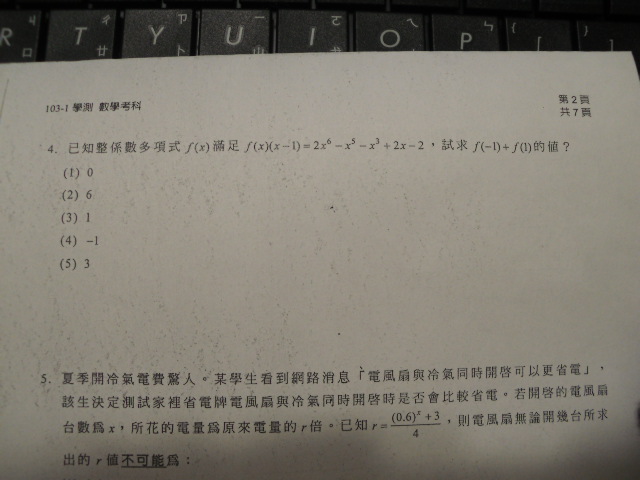 R T Y U I O P { [ } ]
ㄐ ㄔ ㄗ ㄧ ㄛ ㄟ ㄣ
103-1 學測 數學考科
第 2 頁
共 7 頁
4. 已知整係數多項式 f(x) 滿足 f(x)(x−1)=2x⁶−x⁵−x³+2x−2，試求 f(−1)+f(1)的值？
(1) 0
(2) 6
(3) 1
(4) −1
(5) 3
5. 夏季開冷氣電費驚人。某學生看到網路消息「電風扇與冷氣同時開啓可以更省電」，
該生決定測試家裡省電牌電風扇與冷氣同時開啓時是否會比較省電。若開啓的電風扇
台數爲 x，所花的電量爲原來電量的 r 倍。已知 r=((0.6)ˣ+3)/4，則電風扇無論開幾台所求
出的 r 值不可能爲：